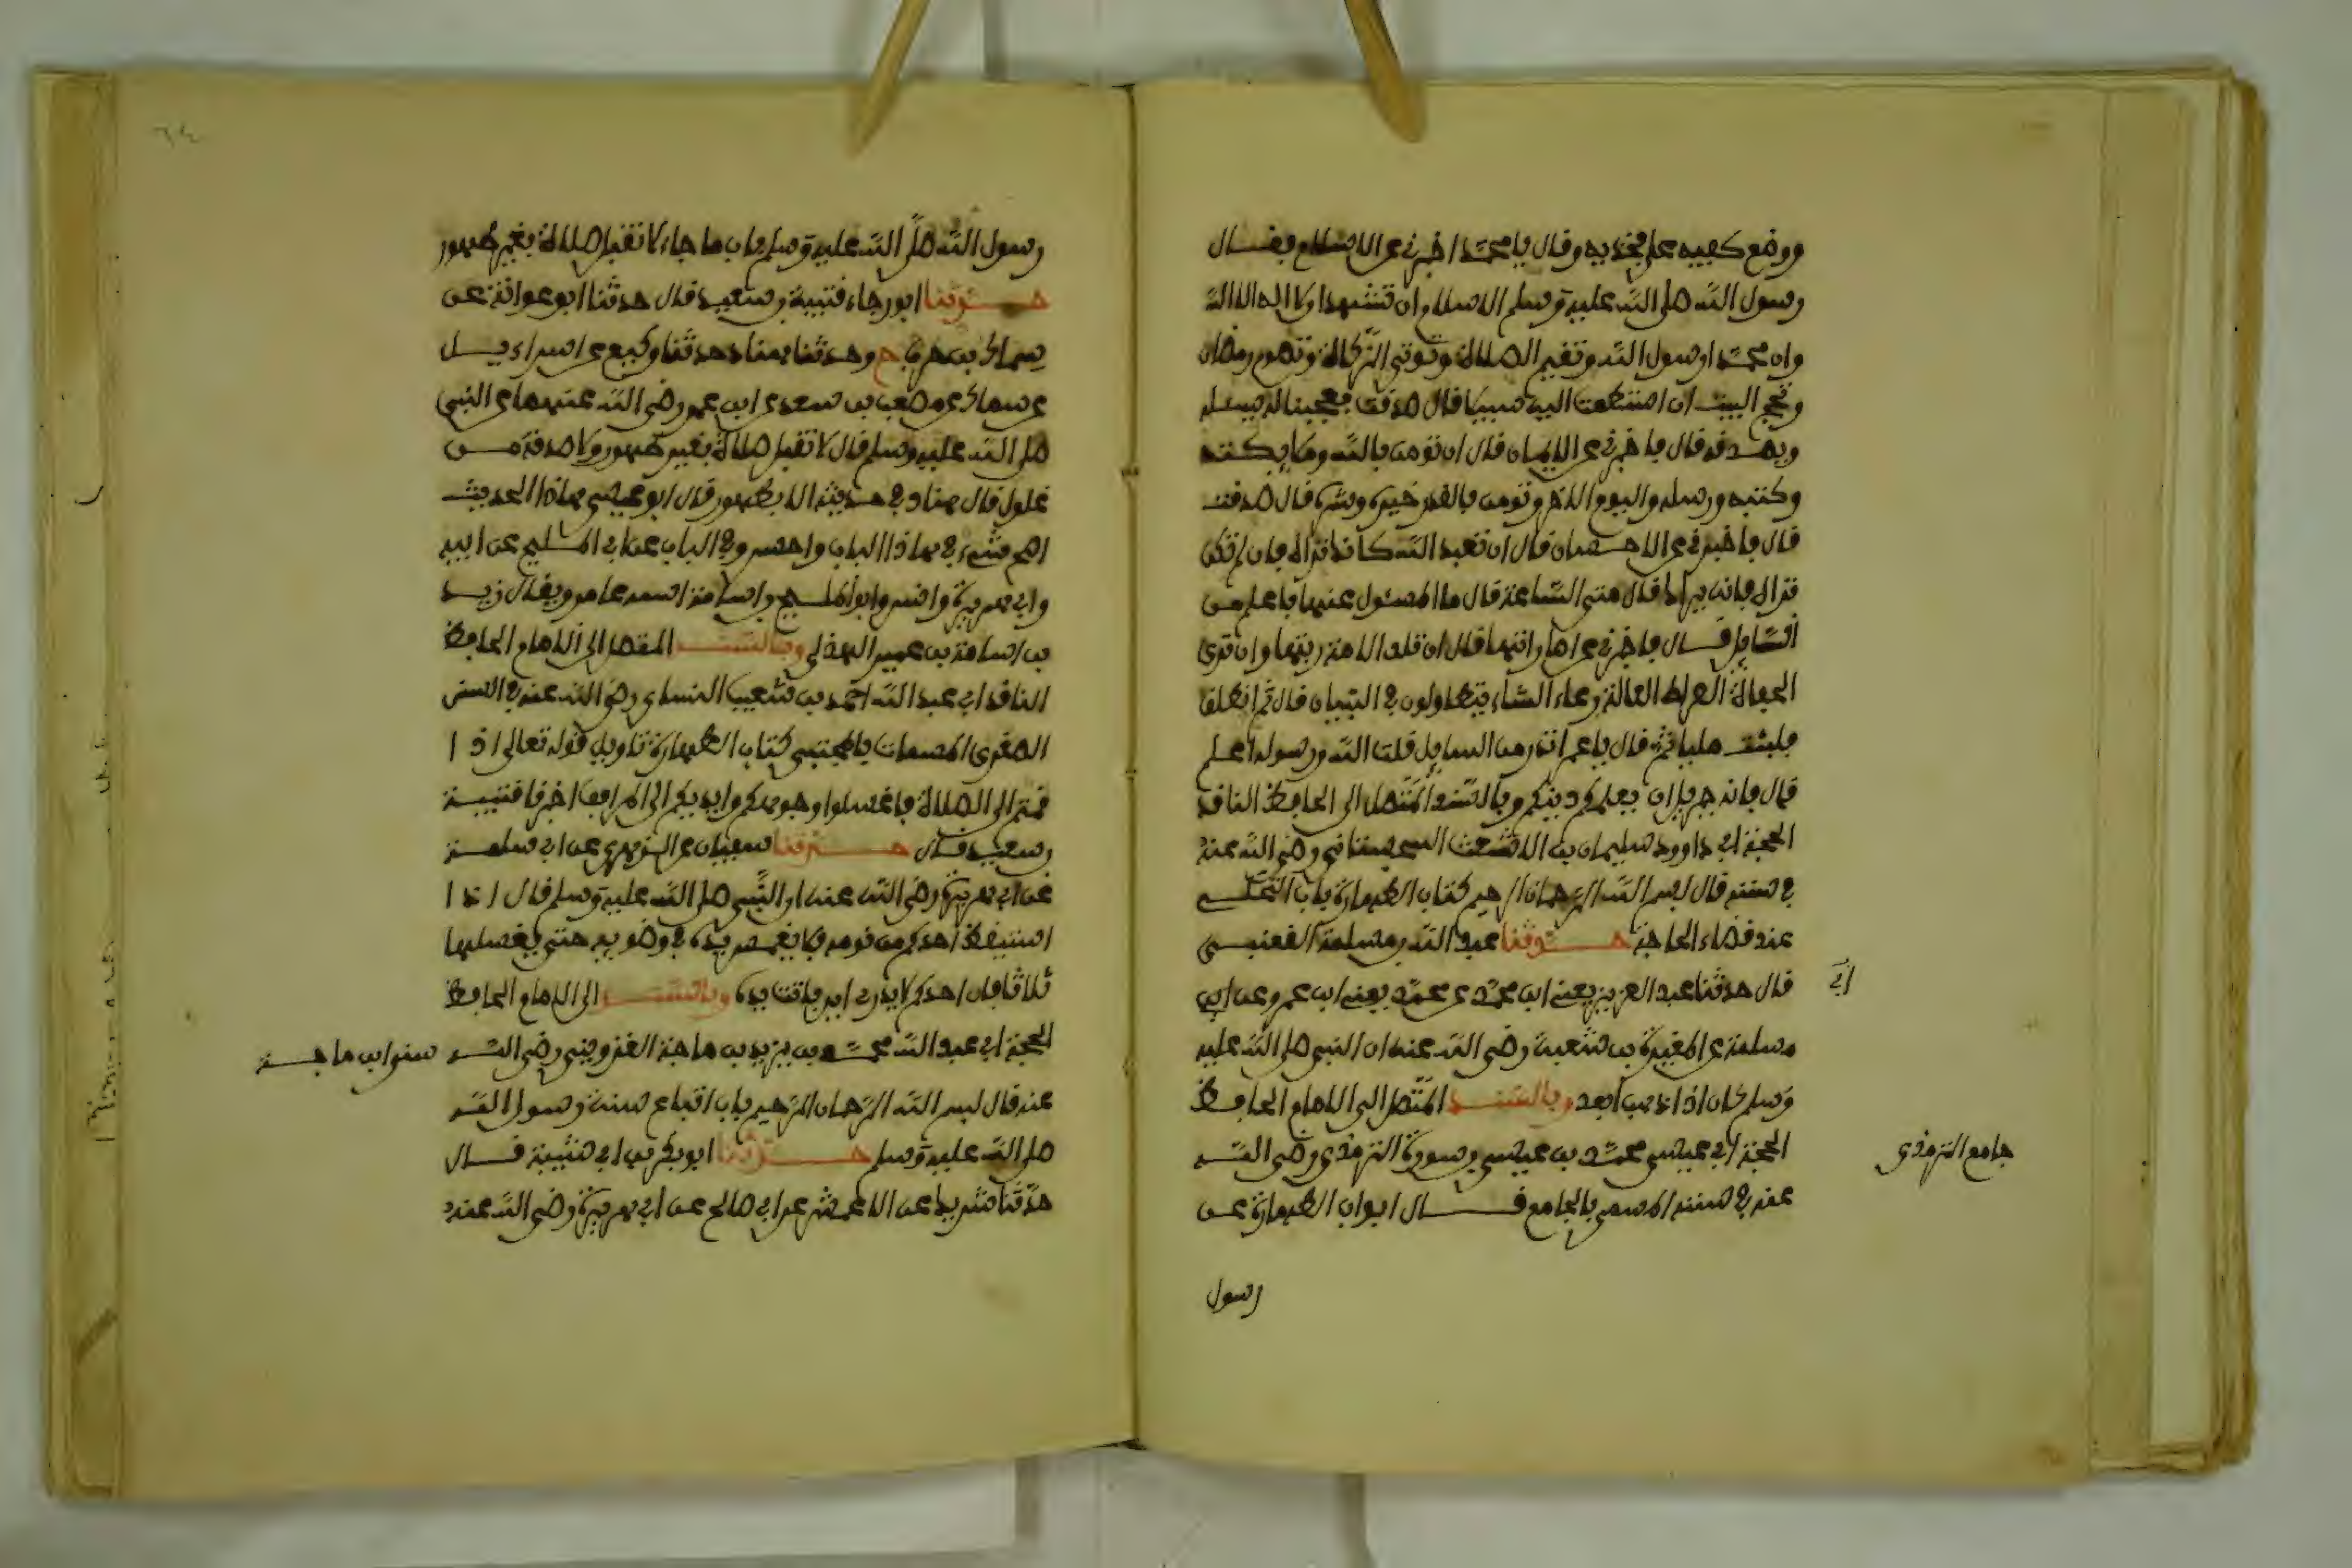 ووضع كفيه على فخذيه وقال يا محمد اخبرني عن الاسلام فقال
رسول الله صلى الله عليه وسلم الاسلام ان تشهد ان لا اله الا الله
وان محمدا رسول الله وتقيم الصلاة وتوتي الزكاة وتصوم رمضان
وتحج البيت ان استطعت اليه سبيلا قال صدقت فعجبنا له يسئله
ويصدقه قال فاخبرني عن الايمان قال ان تومن بالله وملايكته
وكتبه ورسله واليوم الاخر وتومن بالقدر خيره وشره قال صدقت
قال فاخبرني عن الاحسان قال ان تعبد الله كانك تراه فان لم تكن
تراه فانه يراك قال متى الساعة قال ما المسئول عنها باعلم من
السايل قال فاخبرني عن اماراتها قال ان تلد الامة ربتها وان ترى
الحفاة العراة العالة رعاء الشاء يتطاولون في البنيان قال ثم انطلق
فلبثت مليا ثم قال يا عمر اتدر من السايل قلت الله ورسوله اعلم
قال فانه جبريل اتى يعلمكم دينكم وبالسند المتصل الى الحافظ الناقد
الحجة ابي داوود سليمان بن الاشعث السجستاني رضي الله عنه
في سننه قال بسم الله الرحمان الرحيم كتاب الطهارة باب التخلي
عند قضاء الحاجة حدثنا عبد الله بن مسلمة القعنبي
قال حدثنا عبد العزيز يعني ابن محمد عن محمد يعني ابن عمرو عن ابي
مسلمة عن المغيرة بن شعبة رضي الله عنه ان النبي صلى الله عليه
وسلم كان اذا ذهب ابعد وبالسند المتصل الى الامام الحافظ
الحجة ابي عيسى محمد بن عيسى بن سورة الترمذي رضي الله
جامع الترمذي
عنه في سننه المسمى بالجامع قال ابواب الطهارة عن
رسول
رسول الله صلى الله عليه وسلم باب ما جاء لا تقبل صلاة بغير طهور
حدثنا ابو رجاء قتيبة بن سعيد قال حدثنا ابو عوانة عن
سماك بن حرب ح وحدثنا هناد حدثنا وكيع عن اسراءيل
عن سماك عن مصعب بن سعد عن ابن عمر رضي الله عنهما عن النبي
صلى الله عليه وسلم قال لا تقبل صلاة بغير طهور ولا صدقة من
غلول قال هناد في حديثه الا بطهور قال ابو عيسى هاذا الحديث
اصح شيء في هاذا الباب واحسن وفي الباب عن ابي المليح عن ابيه
وابي هريرة وانس وابو المليح بن اسامة اسمه عامر ويقال زيد
بن اسامة بن عمير الهذلي وبالسند المتصل الى الامام الحافظ
الناقد ابي عبد الله احمد بن شعيب النساءي رضي الله عنه في السنن
الصغرى المسمات بالمجتبى كتاب الطهارة تاويل قوله تعالى اذا
قمتم الى الصلاة فاغسلوا وجوهكم وايديكم الى المرافق اخبرنا قتيبة
بن سعيد قال حدثنا سفيان عن الزهري عن ابي سلمة
عن ابي هريرة رضي الله عنه ان النبي صلى الله عليه وسلم قال اذا
استيقظ احدكم من نومه فلا يغمس يده في وضويه حتى يغسلها
ثلاثا فان احدكم لا يدري اين باتت يده وبالسند الى الامام الحافظ
الحجة ابي عبد الله محمد بن يزيد بن ماجة القزويني رضي الله
سنن ابن ماجة
عنه قال بسم الله الرحمان الرحيم باب اتباع سنة رسول الله
صلى الله عليه وسلم حدثنا ابو بكر بن ابي شيبة قال
حدثنا شريك عن الاعمش عن ابي صالح عن ابي هريرة رضي الله عنه